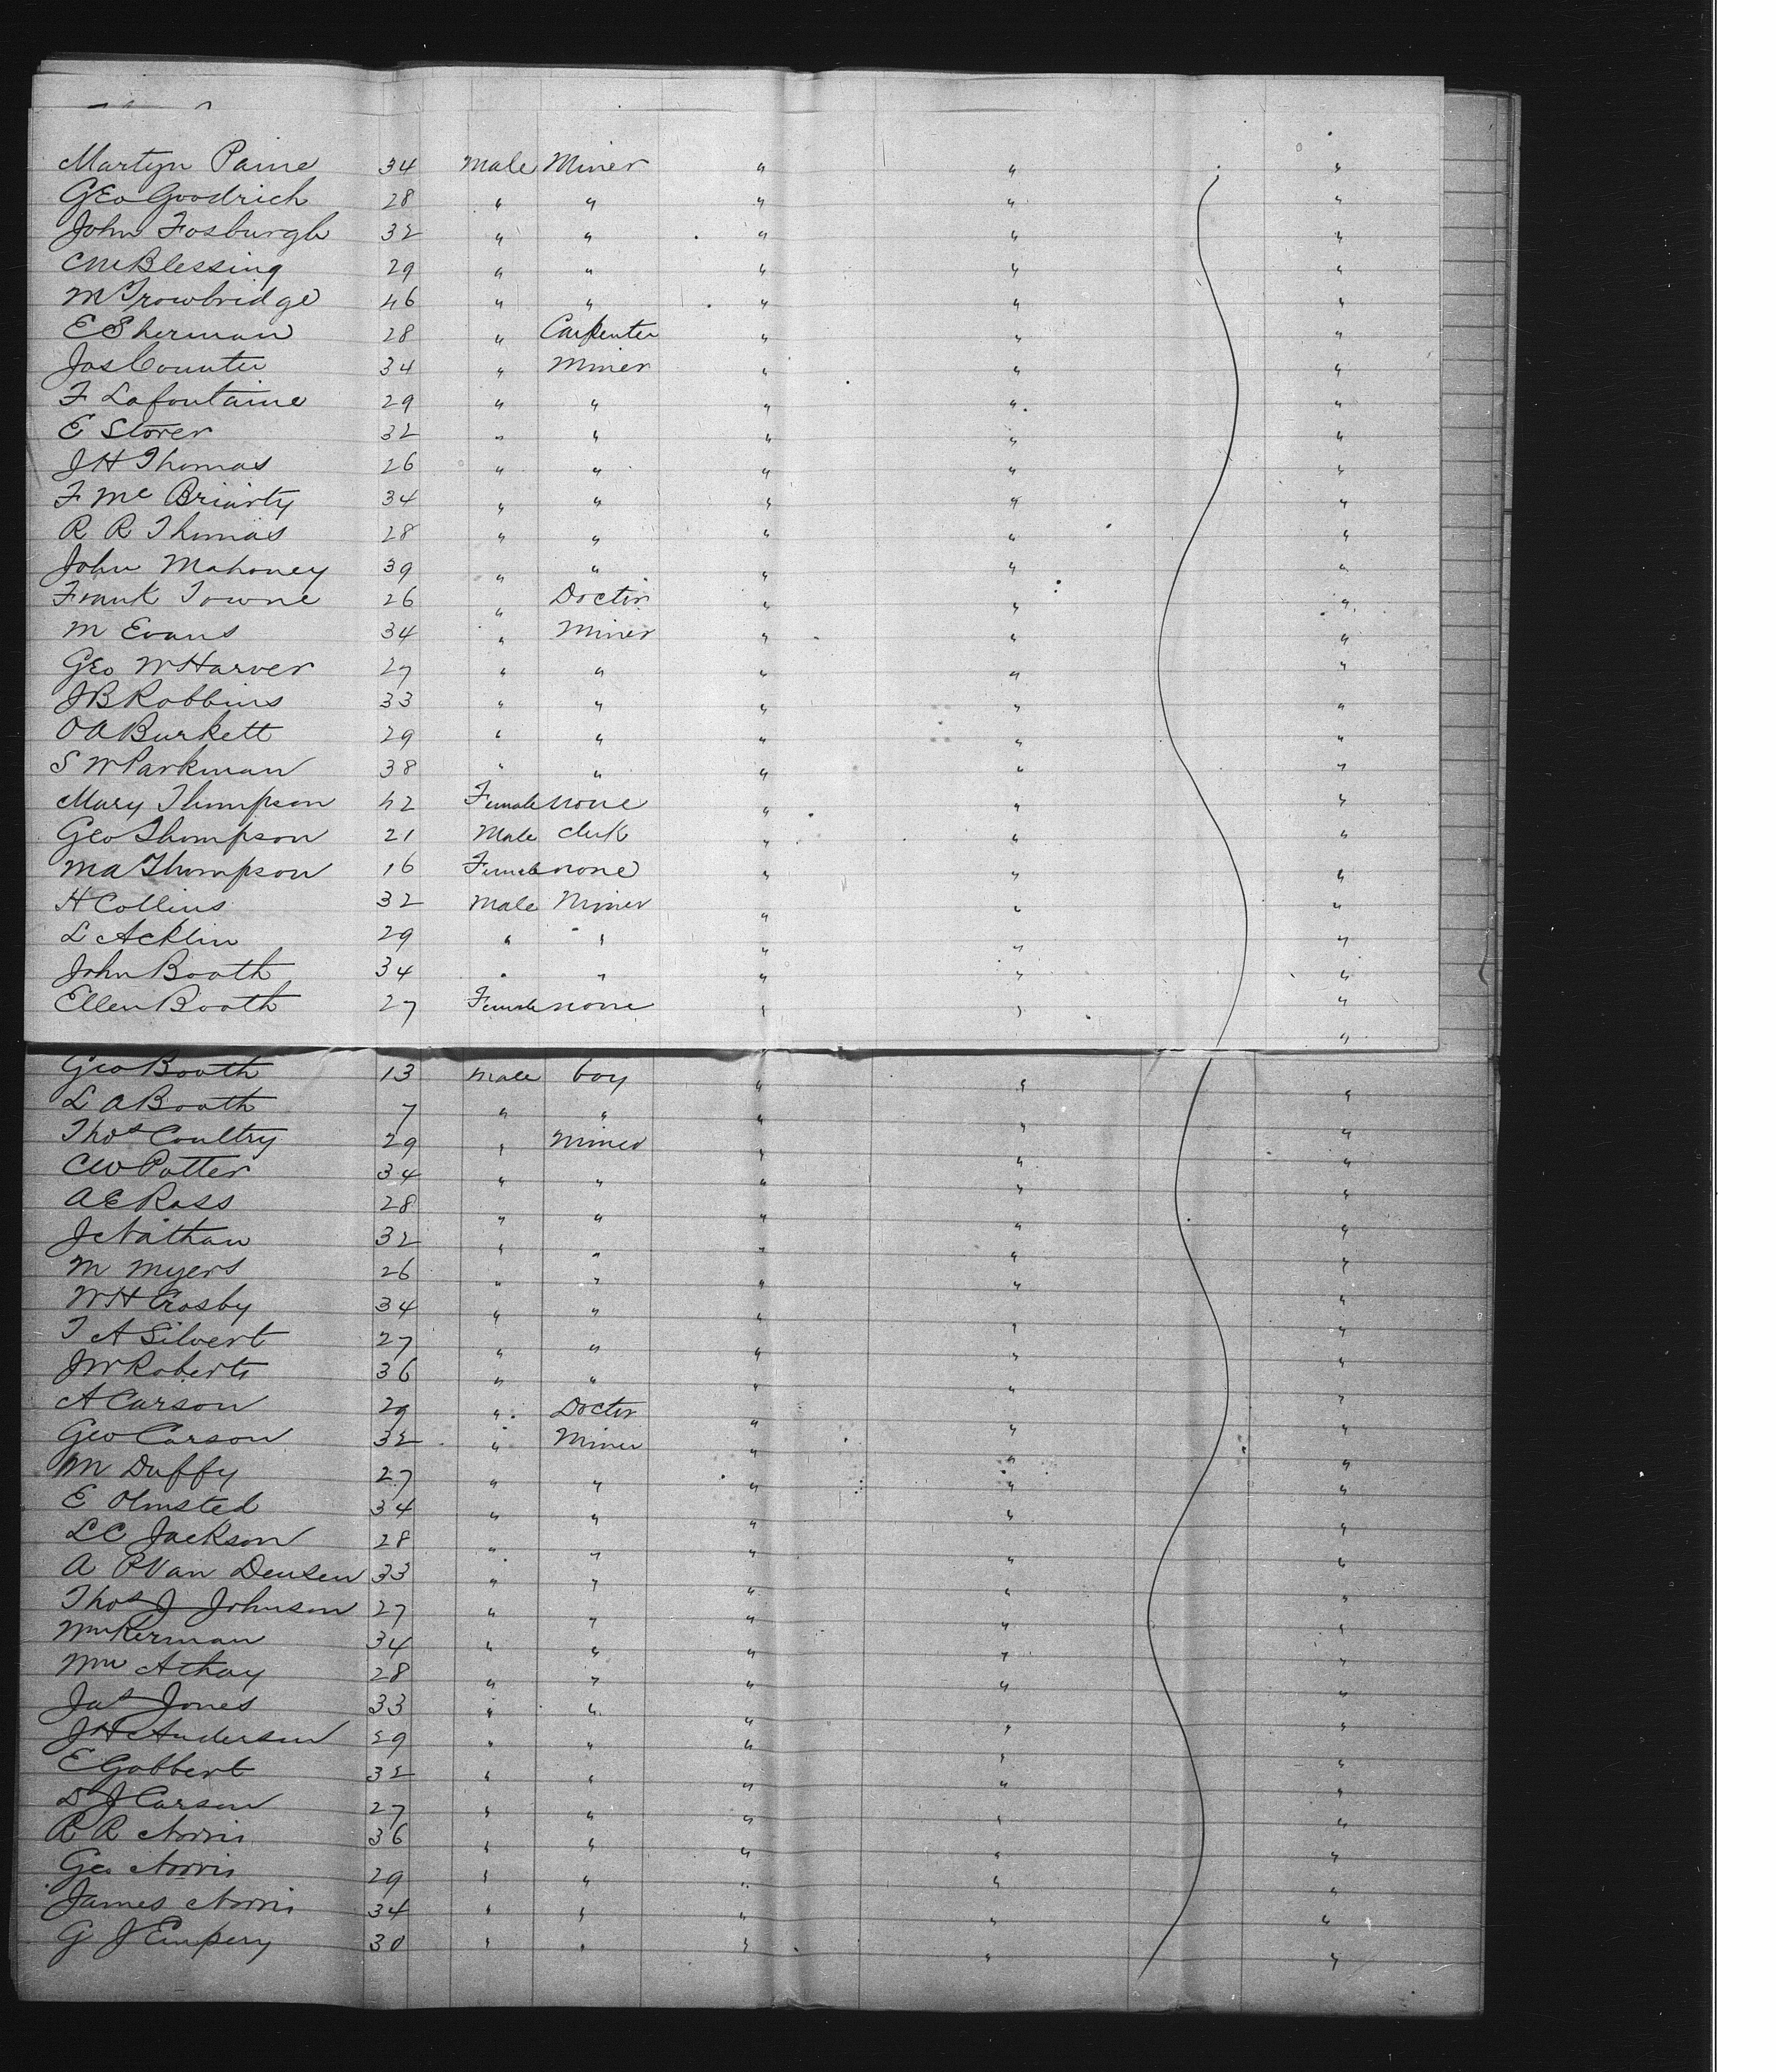 Martyn Paine 34 Male Miner " " "
Geo Goodrich 28 " " " " "
John Fosburgh 32 " " " " "
C M Blessing 29 " " " " "
M Trowbridge 46 " " " " "
E Sherman 28 " Carpenter " " "
Jas Counter 34 " Miner " " "
F Lafontaine 29 " " " " "
E Storer 32 " " " " "
J H Thomas 26 " " " " "
F Mc Briarty 34 " " " " "
R R Thomas 28 " " " " "
John Mahoney 39 " " " " "
Frank Towne 26 " Doctor " " "
M Evans 34 " Miner " " "
Geo W Harver 27 " " " " "
J B Robbins 33 " " " " "
O A Burkett 29 " " " " "
S W Parkman 38 " " " " "
Mary Thompson 42 Female none " " "
Geo Thompson 21 Male Clerk " " "
M A Thompson 16 Female none " " "
H Collins 32 Male Miner " " "
L Acklin 29 " " " " "
John Booth 34 " " " " "
Ellen Booth 27 Female none " " "
Geo Booth 13 Male boy " " "
L A Booth 7 " " " " "
Thos Coultry 29 " Miner " " "
C W Potter 34 " " " " "
A E Ross 28 " " " " "
J Nathan 32 " " " " "
M Myers 26 " " " " "
W H Crosby 34 " " " " "
T A Silvert 27 " " " " "
J W Roberts 36 " " " " "
A Carson 29 " Doctor " " "
Geo Carson 32 " Miner " " "
M Duffy 27 " " " " "
E Olmsted 34 " " " " "
L C Jackson 28 " " " " "
A P Van Deusen 33 " " " " "
Thos J Johnson 27 " " " " "
Wm Kerman 34 " " " " "
Wm Athay 28 " " " " "
Jas Jones 33 " " " " "
J H Anderson 29 " " " " "
E Gabbert 32 " " " " "
D J Carson 27 " " " " "
R R Norris 36 " " " " "
Geo Norris 29 " " " " "
James Norris 34 " " " " "
G J Empery 30 " " " " "